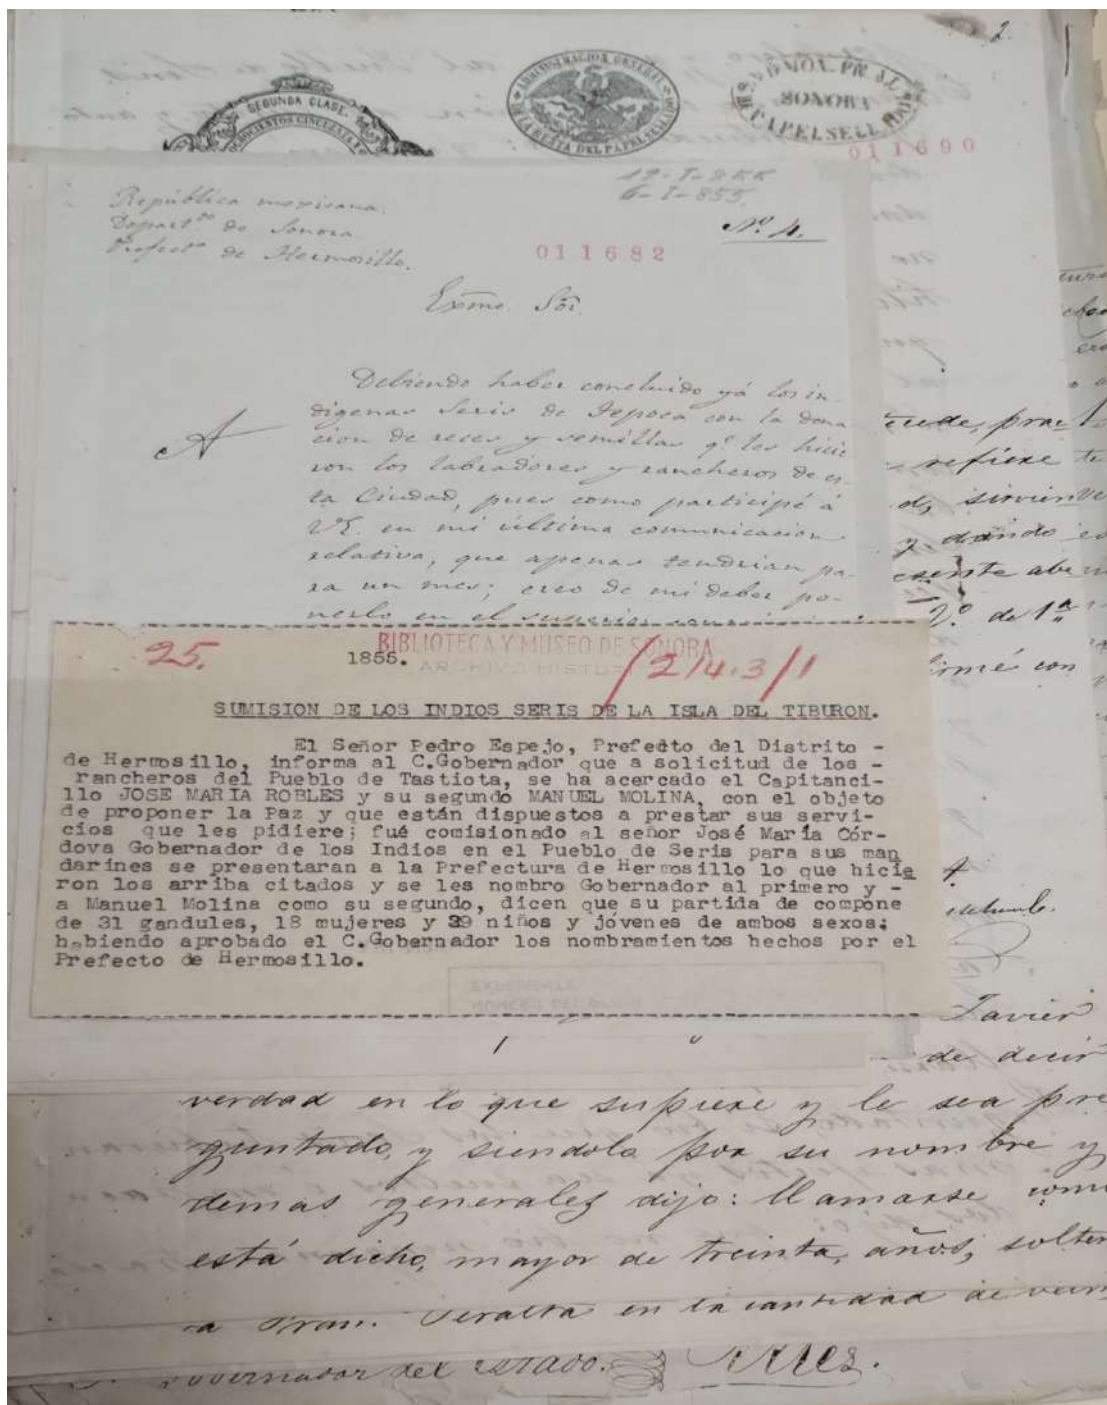 2.
SEGUNDA CLASE.
OCHOCIENTOS CINCUENTA
ADMINISTRACION GENERAL
DE LA RENTA DEL PAPEL SELLADO
SONORA
011690
República mexicana.
Depart.to de Sonora.
Prefect.a de Hermosillo.
6-I-855.
Nº 4.
011682
Exmo. Sõr.
Debiendo haber concluido yá los in-
digenas Seris de Tepoca con la dona
cion de reces y semillas q.e les hicie
ron los labradores y rancheros de es-
ta Ciudad, pues como participé á
VE. en mi última comunicacion
relativa, que apenas tendrian pa-
ra un mes; creo de mi deber po-
nerlo en el superior
A
refiere
y dando
de 1ª
firmé con
25.
BIBLIOTECA Y MUSEO DE SONORA
1855.
2/4.3/1
SUMISION DE LOS INDIOS SERIS DE LA ISLA DEL TIBURON.
El Señor Pedro Espejo, Prefecto del Distrito -
de Hermosillo, informa al C.Gobernador que a solicitud de los -
rancheros del Pueblo de Tastiota, se ha acercado el Capitanci-
llo JOSE MARIA ROBLES y su segundo MANUEL MOLINA, con el objeto
de proponer la Paz y que están dispuestos a prestar sus servi-
cios que les pidiere; fué comisionado al señor José María Cór-
dova Gobernador de los Indios en el Pueblo de Seris para sus man
darines se presentaran a la Prefectura de Hermosillo lo que hicie
ron los arriba citados y se les nombro Gobernador al primero y -
a Manuel Molina como su segundo, dicen que su partida de compone
de 31 gandules, 18 mujeres y 29 niños y jóvenes de ambos sexos;
habiendo aprobado el C.Gobernador los nombramientos hechos por el
Prefecto de Hermosillo.
Javier
de decir
verdad en lo que supiere y le sea pre
guntado, y siendolo por su nombre y
demas generales dijo: llamarse como
está dicho, mayor de treinta, años, solter
a Fran. Peralta en la cantidad de vein
Gobernador del Estado.